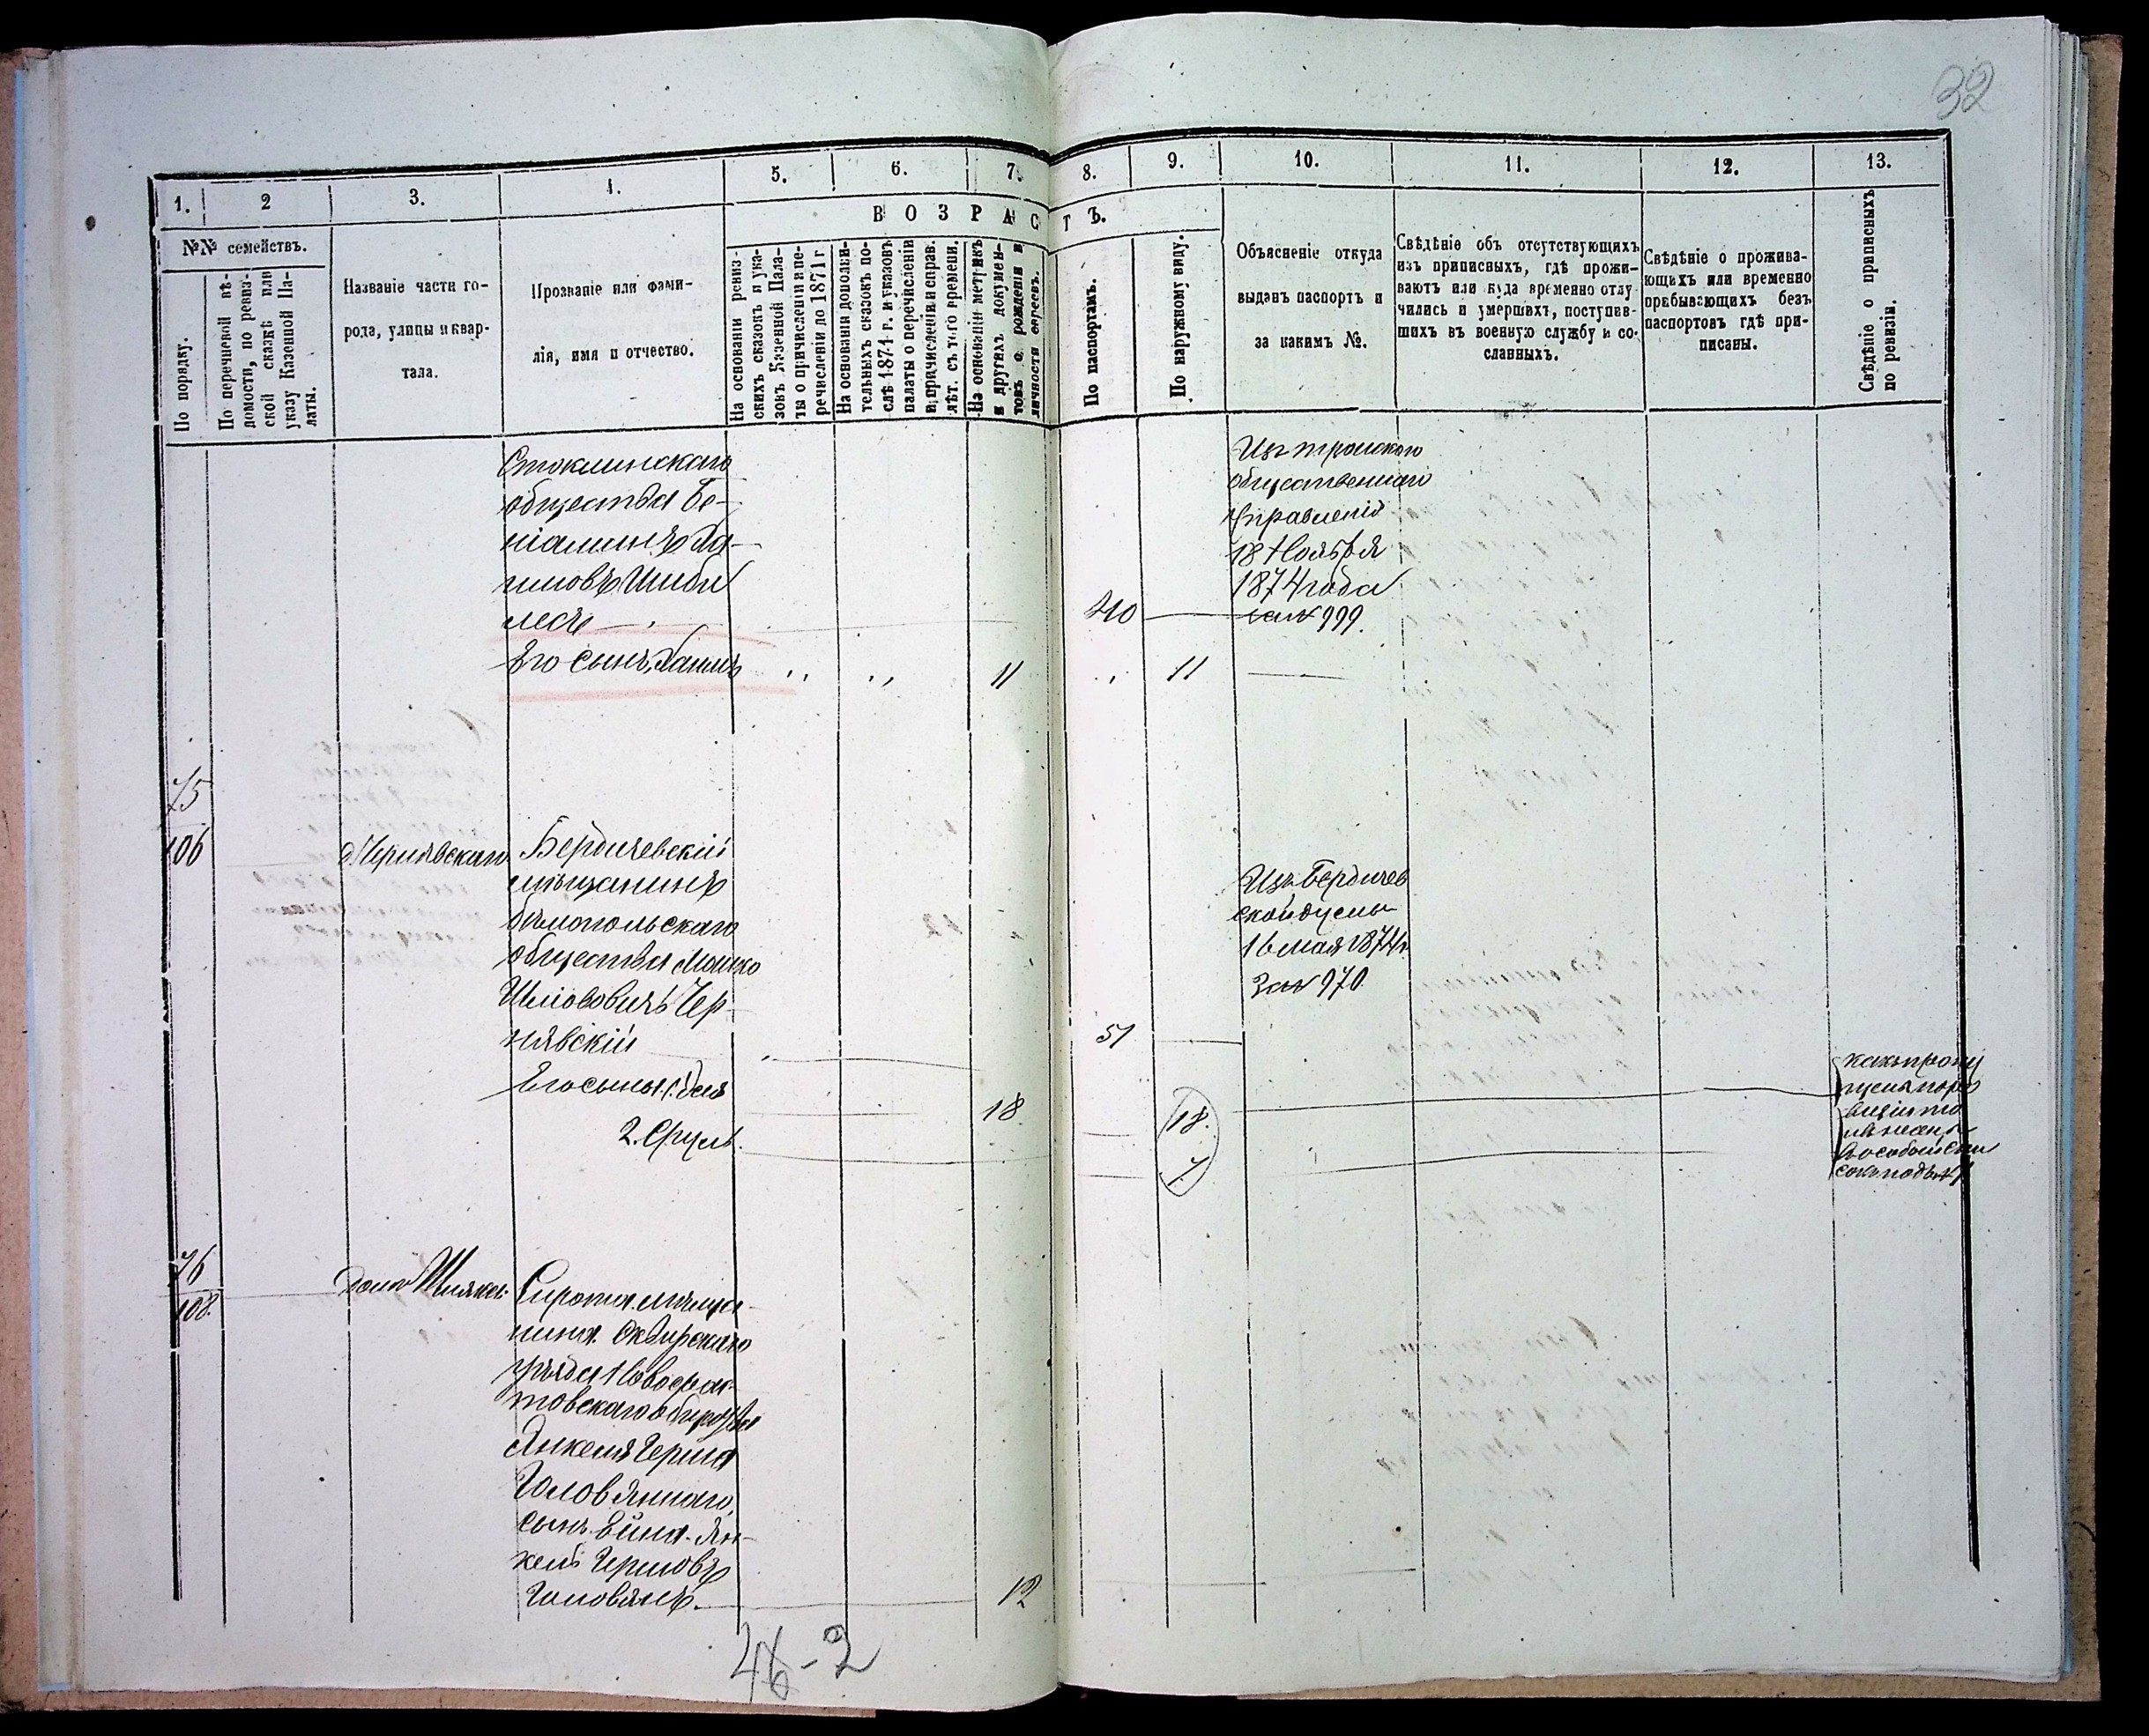 32
1. 2 3. 4. 5. 6. 7. 8. 9. 10. 11. 12. 13.
№№ семействъ.
ВОЗРАСТЪ.
По порядку.
По перечневой вѣ-
домости, по ревиз-
ской сказкѣ или
указу Казенной Па-
латы.
Названіе части го-
рода, улицы и квар-
тала.
Прозваніе или фами-
лія, имя и отчество.
На основаніи ревиз-
скихъ сказокъ и ука-
зовъ Казенной Пала-
ты о причисленіи и пе-
речисленіи до 1871 г
На основаніи дополни-
тельныхъ сказокъ по-
слѣ 1871 г. и указовъ
палаты о перечисленіи
и причисленіи и справ.
лѣт. съ того времени.
На основаніи метрикъ
и другихъ докумен-
товъ о рожденіи и
личности евреевъ.
По паспортамъ.
По наружному виду.
Объясненіе откуда
выданъ паспортъ и
за какимъ №.
Свѣдѣніе объ отсутствующихъ
изъ приписныхъ, гдѣ прожи-
ваютъ или куда временно отлу-
чились и умершихъ, поступив-
шихъ въ военную службу и со-
сланныхъ.
Свѣдѣніе о прожива-
ющихъ или временно
пребывающихъ безъ
паспортовъ гдѣ при-
писаны.
Свѣдѣніе о приписныхъ
по ревизіи.
общества Бе-
ніаминъ
40
Его сынъ
11
11
Изъ
общественнаго
Управленія
18 Ноября
1874 года
за № 999.
75
106
д. Чернявскаго
Бердичевскій
мѣщанинъ
бѣлопольскаго
общества Мошко
Шліововичъ Чер-
нявскій
51
Его сыны 1.
18
18.
2. Сруль.
7
Изъ Бердичев
ской думы
16 мая 1874 г.
За № 970.
76
108.
домъ
Сирота мѣща-
нина Сквирскаго
уѣзда Новофас-
товскаго общества
Янкеля Герша
Головянаго,
сынъ Ян-
кель Гершовъ
Головянъ.
12
46-2